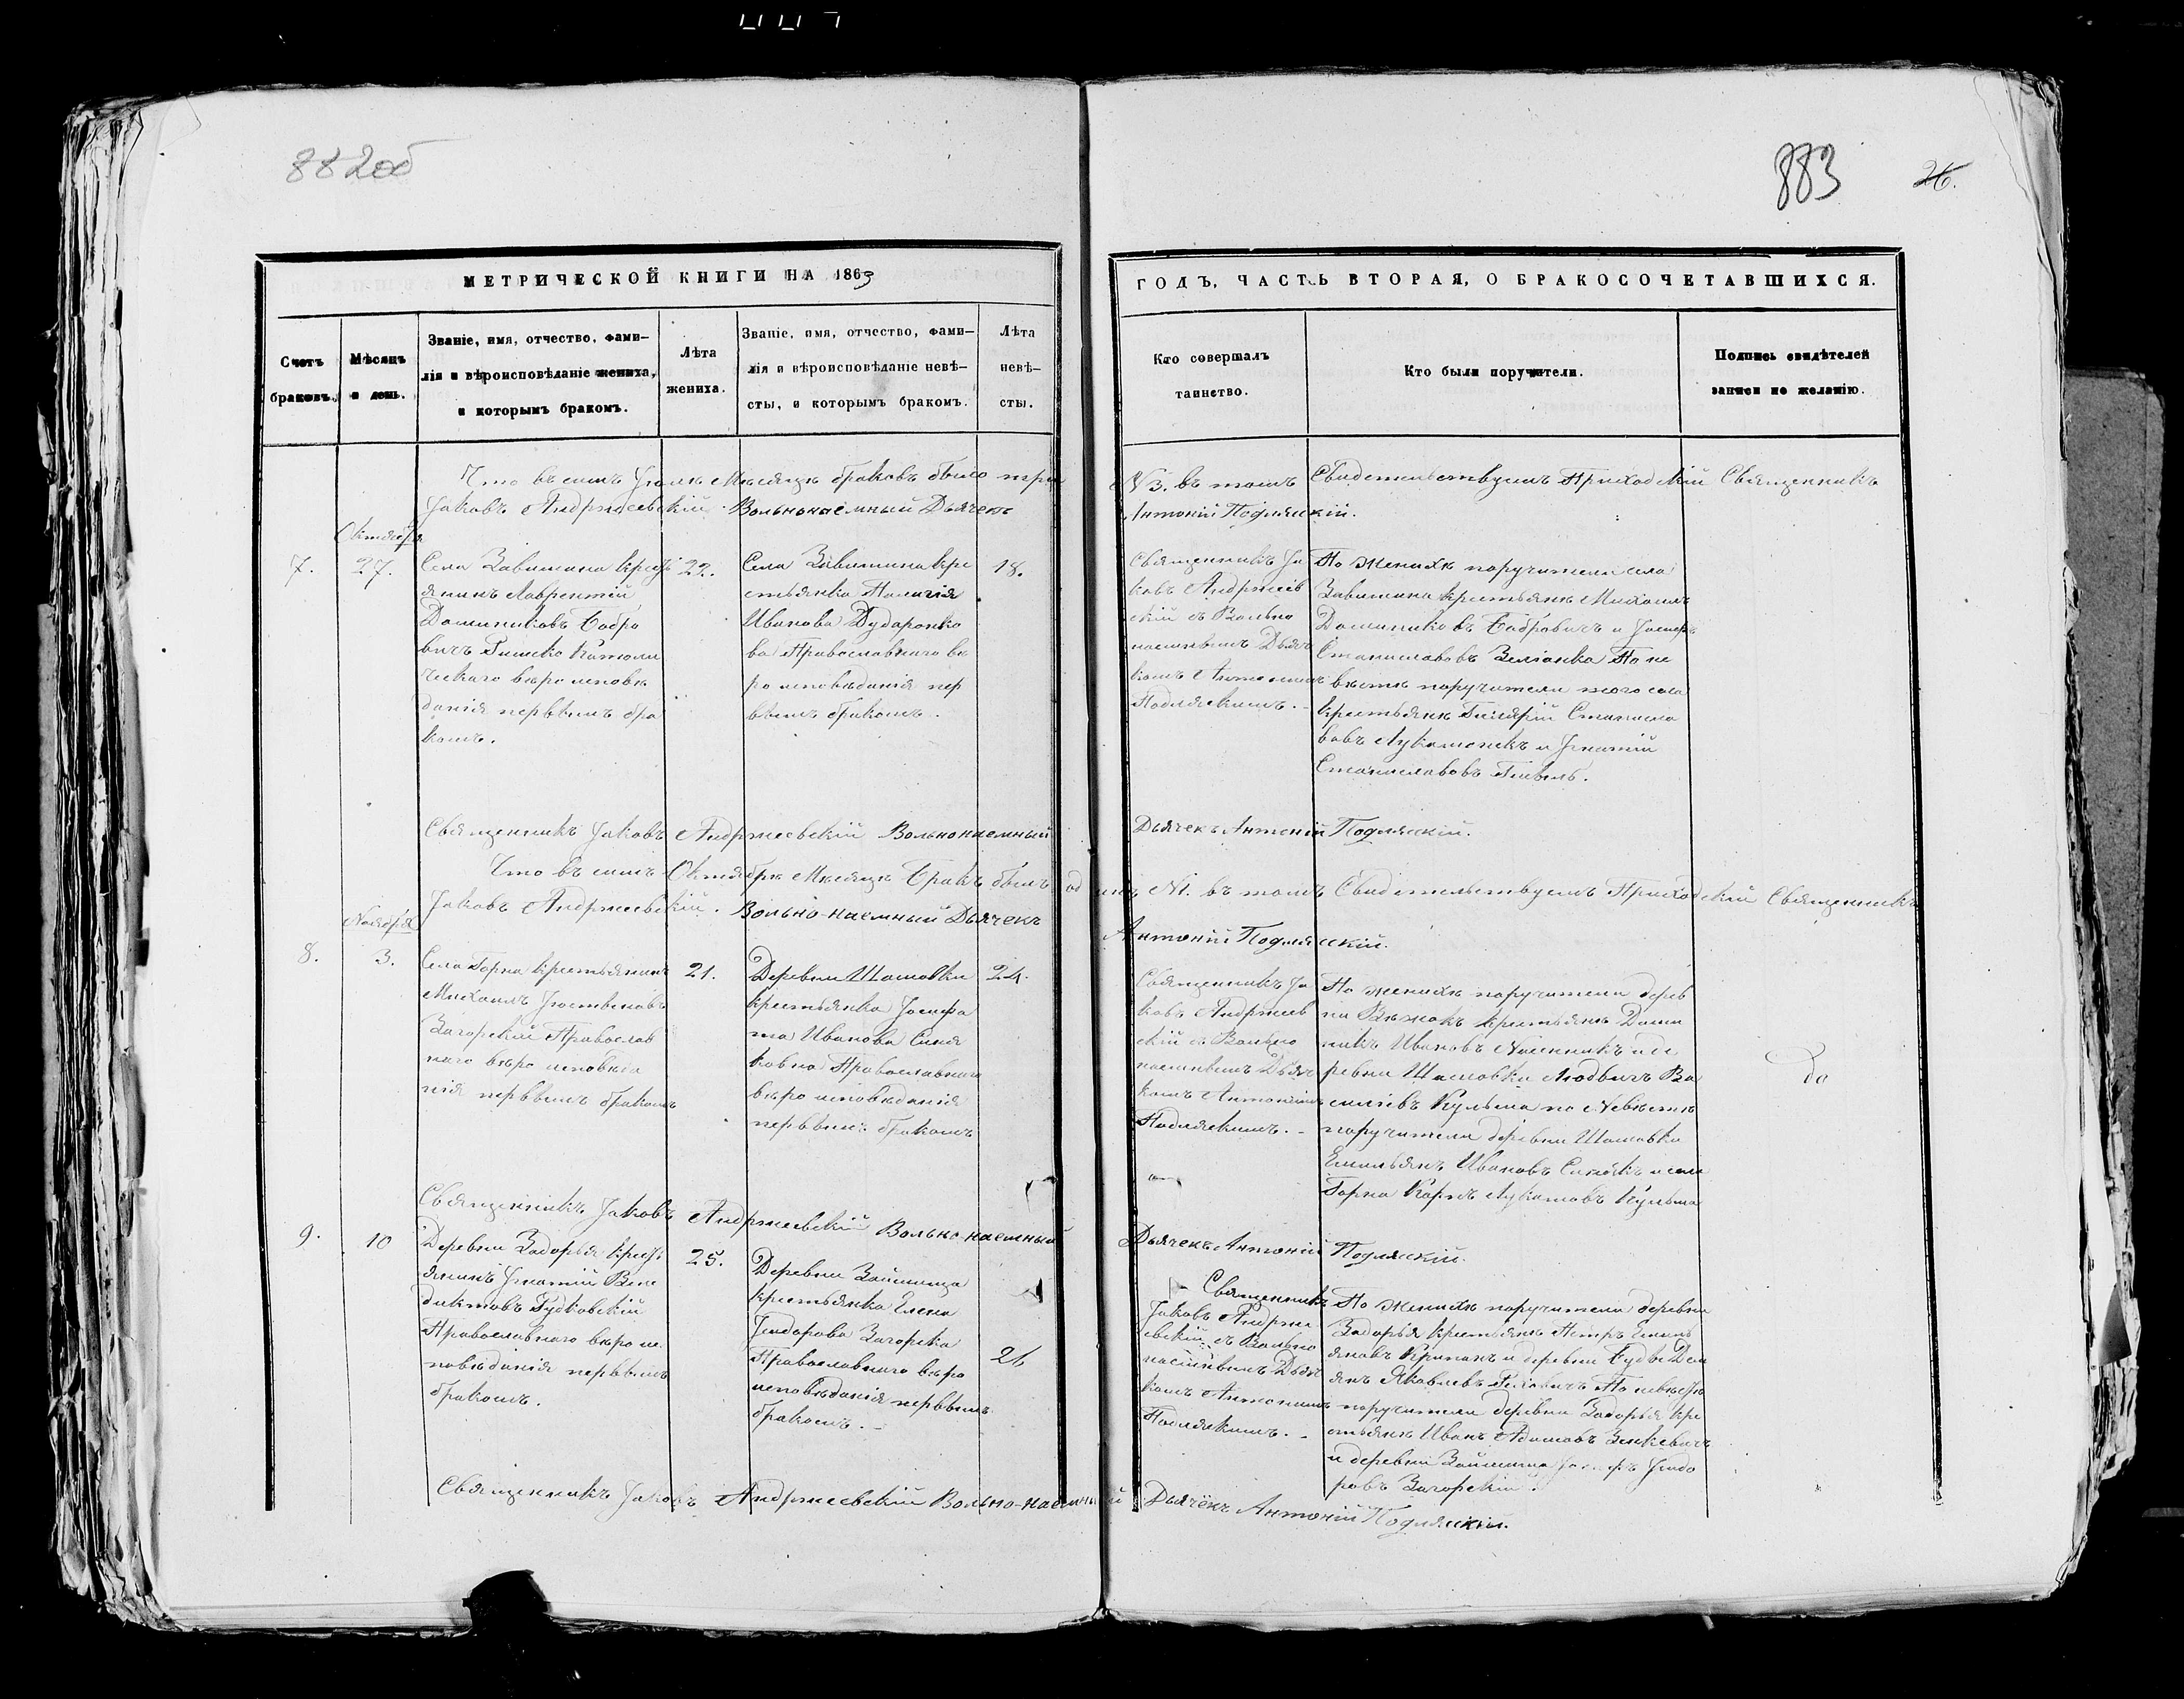 882об
883
26.
МЕТРИЧЕСКОЙ КНИГИ НА 1863
ГОДЪ, ЧАСТЬ ВТОРАЯ, О БРАКОСОЧЕТАВШИХСЯ.
Счетъ
браковъ.
Мѣсяцъ
и день.
Званіе, имя, отчество, фами-
лія и вѣроисповѣданіе жениха,
и которымъ бракомъ.
Лѣта
жениха.
Званіе, имя, отчество, фами-
лія и вѣроисповѣданіе невѣ-
сты, и которымъ бракомъ.
Лѣта
невѣ-
сты.
Кто совершалъ
таинство.
Кто были поручители.
Подпись свидѣтелей
записи по желанію.
Что въ семъ Мѣсяцѣ браковъ было три N 3. въ томъ Свидетельствуемъ Приходскій Священникъ
Іаковъ Андржеевскій. Вольнонаемный Дьячекъ Антоній Подляскій.
Октября
7.
27.
Села Завишина крест
янинъ Лаврентій
Доминиковъ Бобро
вичъ Римско Католи
ческаго вѣро исповѣ
данія первымъ бра
комъ.
22.
Села Завишина кре
стьянка Пелагія
Иванова Дударонко
ва Православнаго вѣ
ро исповѣданія пер
вымъ бракомъ.
18.
Священникъ Іа
ковъ Андржеев
скій съ Вольно
наемнымъ Дьяч
комъ Антоніемъ
Подляскимъ. -
По женихѣ поручители села
Завишина крестьяне Михаилъ
Доминиковъ Бобровичъ и Іосифъ
Станиславовъ По не
вѣстѣ поручители того села
крестьяне Гиларій Станисла
вовъ и Игнатій
Станиславовъ
Священникъ Іаковъ Андржеевскій Вольнонаемный Дьячекъ Антоній Подляскій.
Что въ семъ Октябрѣ Мѣсяцѣ Бракъ былъ одинъ N1. въ томъ Свидетельствуемъ Приходскій Священникъ
Іаковъ Андржеевскій. Вольно-наемный Дьячекъ Антоній Подляскій.
Ноября
8.
3.
Села Горна крестьянинъ
Михаилъ
Загорскій Православ
наго вѣро исповѣда
нія первымъ бракомъ
21.
Деревни Шашовки
крестьянка Іосифа
та Иванова Синя
ковна Православнаго
вѣро исповѣданія
первымъ бракомъ
24.
Священникъ Іа
ковъ Андржеев
скій съ Вольно
наемнымъ Дьяч
комъ Антоніемъ
Подляскимъ. -
По женихѣ поручители дерев
ни крестьяне Доми
никъ Ивановъ и де
ревни Шашовки Людвигъ Ва
силіевъ Кульша по Невѣстѣ
поручители деревни Шашовки
Емельянъ Ивановъ Синякъ и села
Горна Карпъ Лукашовъ Кульша
Священникъ Іаковъ Андржеевскій Вольно-наемный Дьячекъ Антоній Подляскій.
9.
10
Деревни Задорья крест
янинъ Игнатій Вене
диктовъ Рудковскій
Православнаго вѣро ис
повѣданія первымъ
бракомъ.
25.
Деревни
крестьянка Елена
Загорска
Православнаго вѣро
исповѣданія первымъ
бракомъ. -
26
Священникъ
Іаковъ Андрже
евскій съ Вольно
наемнымъ Дьяч
комъ Антоніемъ
Подляскимъ. -
По женихѣ поручители деревни
Задорья крестьяне Петръ Емель
яновъ и деревни Дем
янъ Яковлевъ По невѣстѣ
поручители деревни Задорья кре
стьяне Иванъ Адамовъ Зенкевичъ
и деревни Іосифъ
ровъ Загорскій.
Священникъ Іаковъ Андржеевскій Вольно-наемный Дьячекъ Антоній Подляскій.